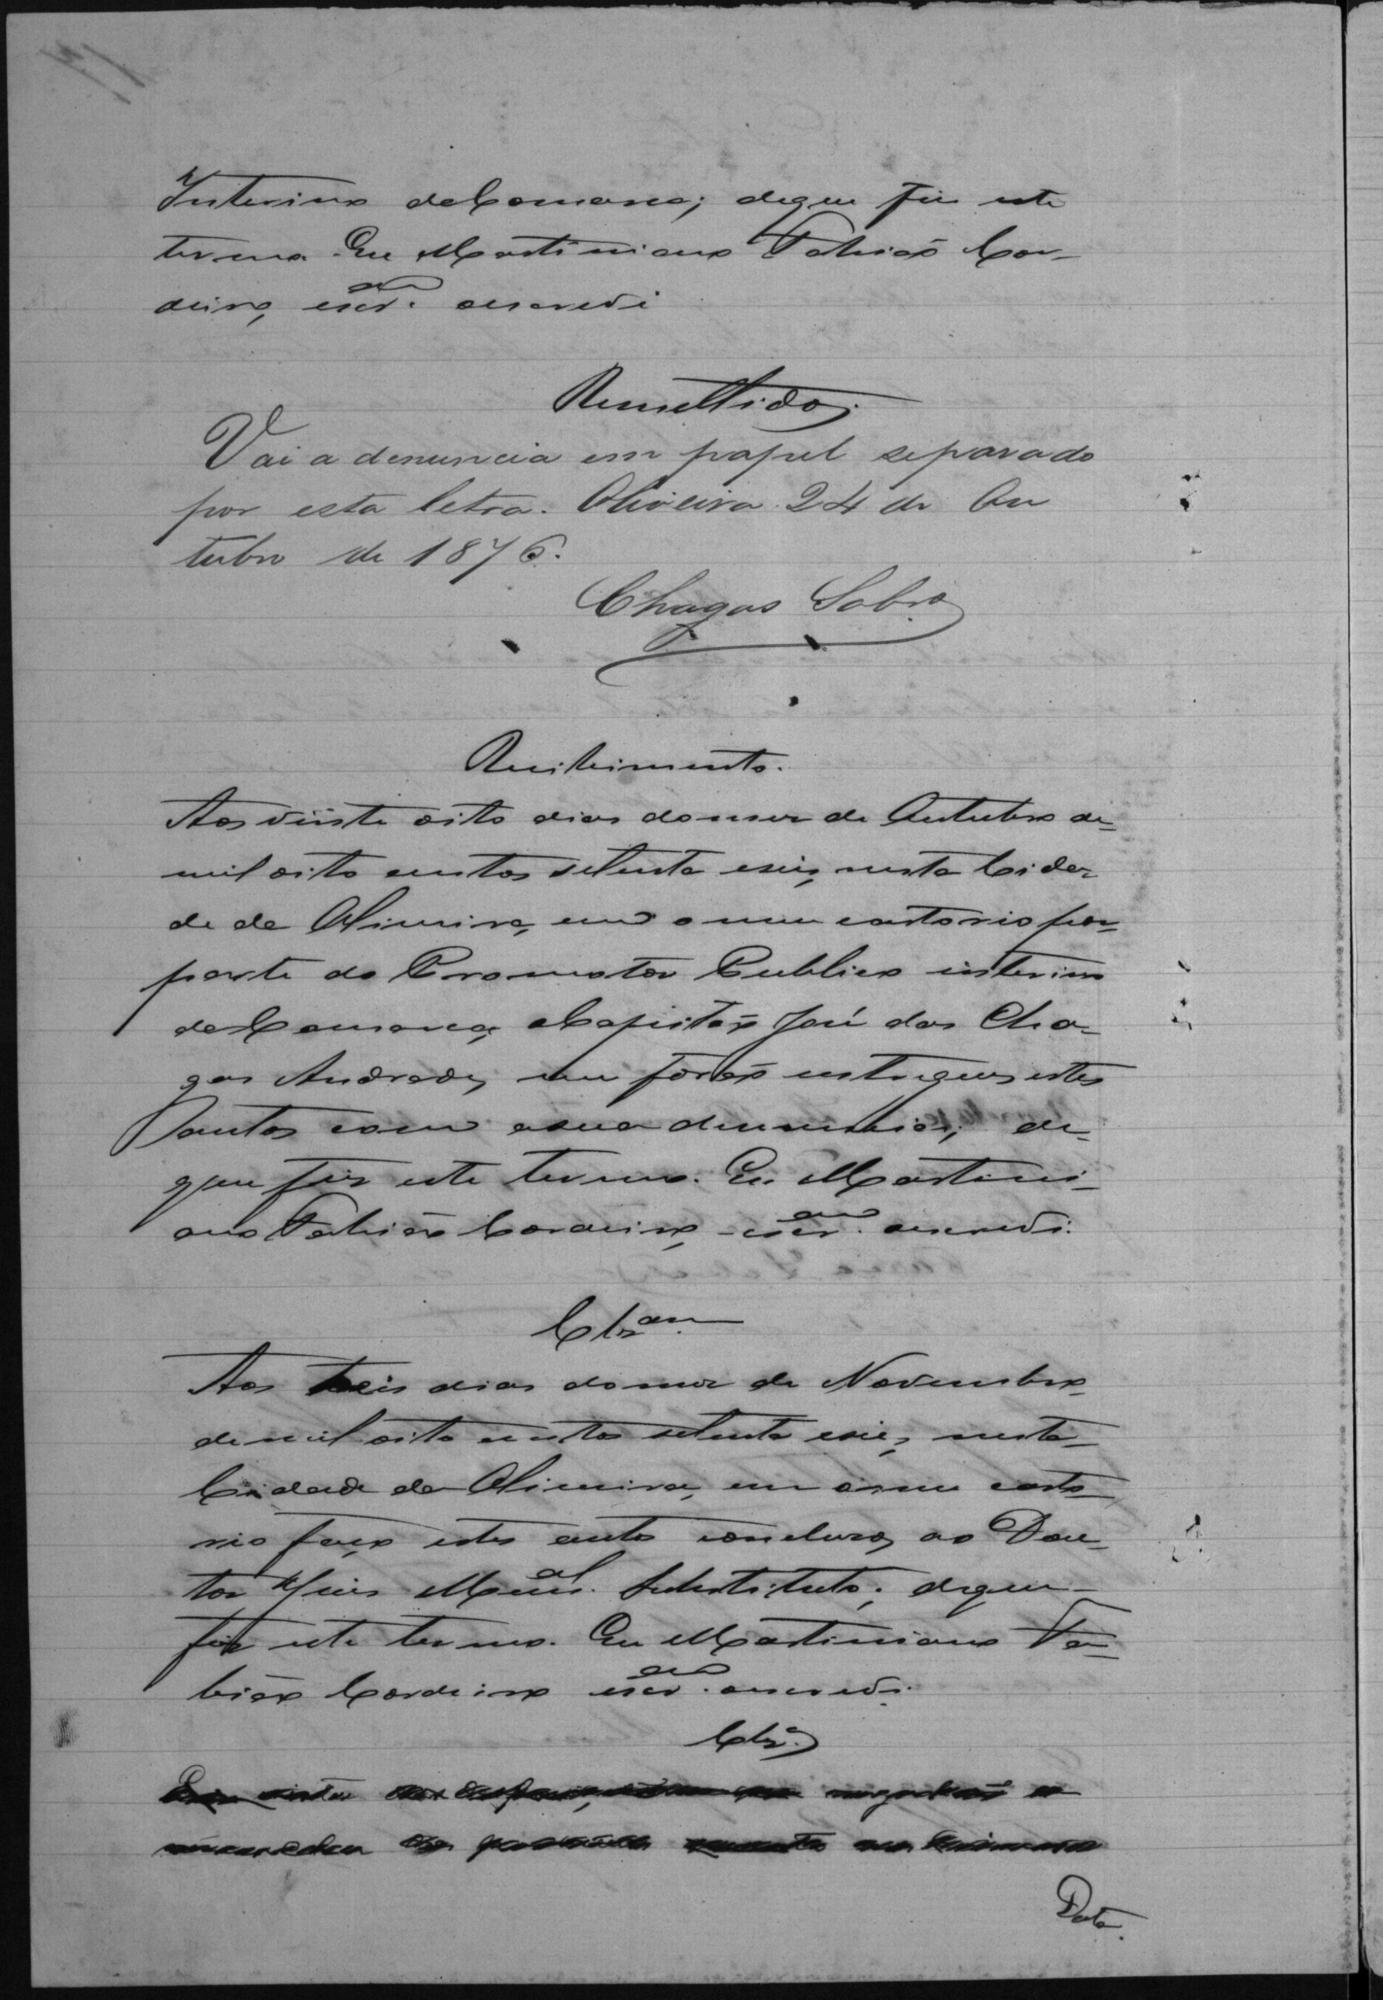 Interino da Comarca; de que fiz este
termo. Eu Martiniano Tobias Cor-
deiro, escr.am o escrevi
Remettidos.
Vai a denuncia em papel separado
por esta letra. Oliveira 24 de Ou
tubro de 1876.
Chagas Sobro.
Recebimento.
Aos vinte oito dias do mez de Outubro de
mil oito centos setenta e seis, nesta Cida
de de Oliveira, em o meu cartorio por
parte do Promotor Publico interino
da Comarca, o Capitão José das Cha-
gas Andrade, me forão entregues estes
autos com a sua denuncia; de
que fiz este termo. Eu Martini-
ano Tobias Cordeiro, escr.am o escrevi.
Clz.am
Aos tres dias do mez de Novembro
de mil oito centos setenta e seis, nesta
Cidade da Oliveira, em o meu carto
rio faço estes autos conclusos ao Dou-
tor Juiz Mun.al Substituto; de que
fiz este termo. Eu Martiniano To-
bias Cordeiro escr.am o escrevi.
Clz.
Data.